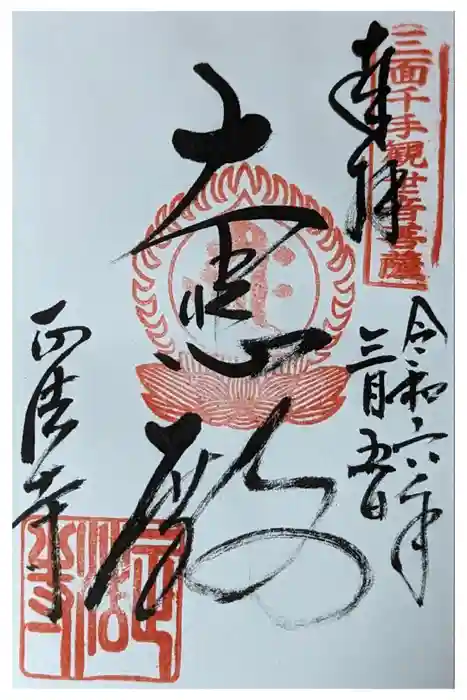 奉拝
三面千手観世音菩薩
令和六年
三月五日
大悲殿
正法寺